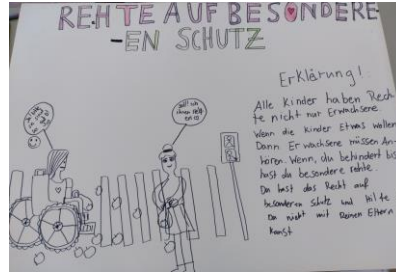 REHTE AUF BESONDERE
-EN SCHUTZ
Erklärung!
Alle Kinder haben Rech-
te nicht nur Erwachsene.
Wenn die Kinder Etwas wollen
Dann Erwachsene müssen An-
hören. Wenn, du behindert bis
hast du besondere rehte.
Du hast das Recht auf
besonderen Schutz und Hilfe
Du nicht mit Deinen Eltern
kannst
soll ich
ihnen